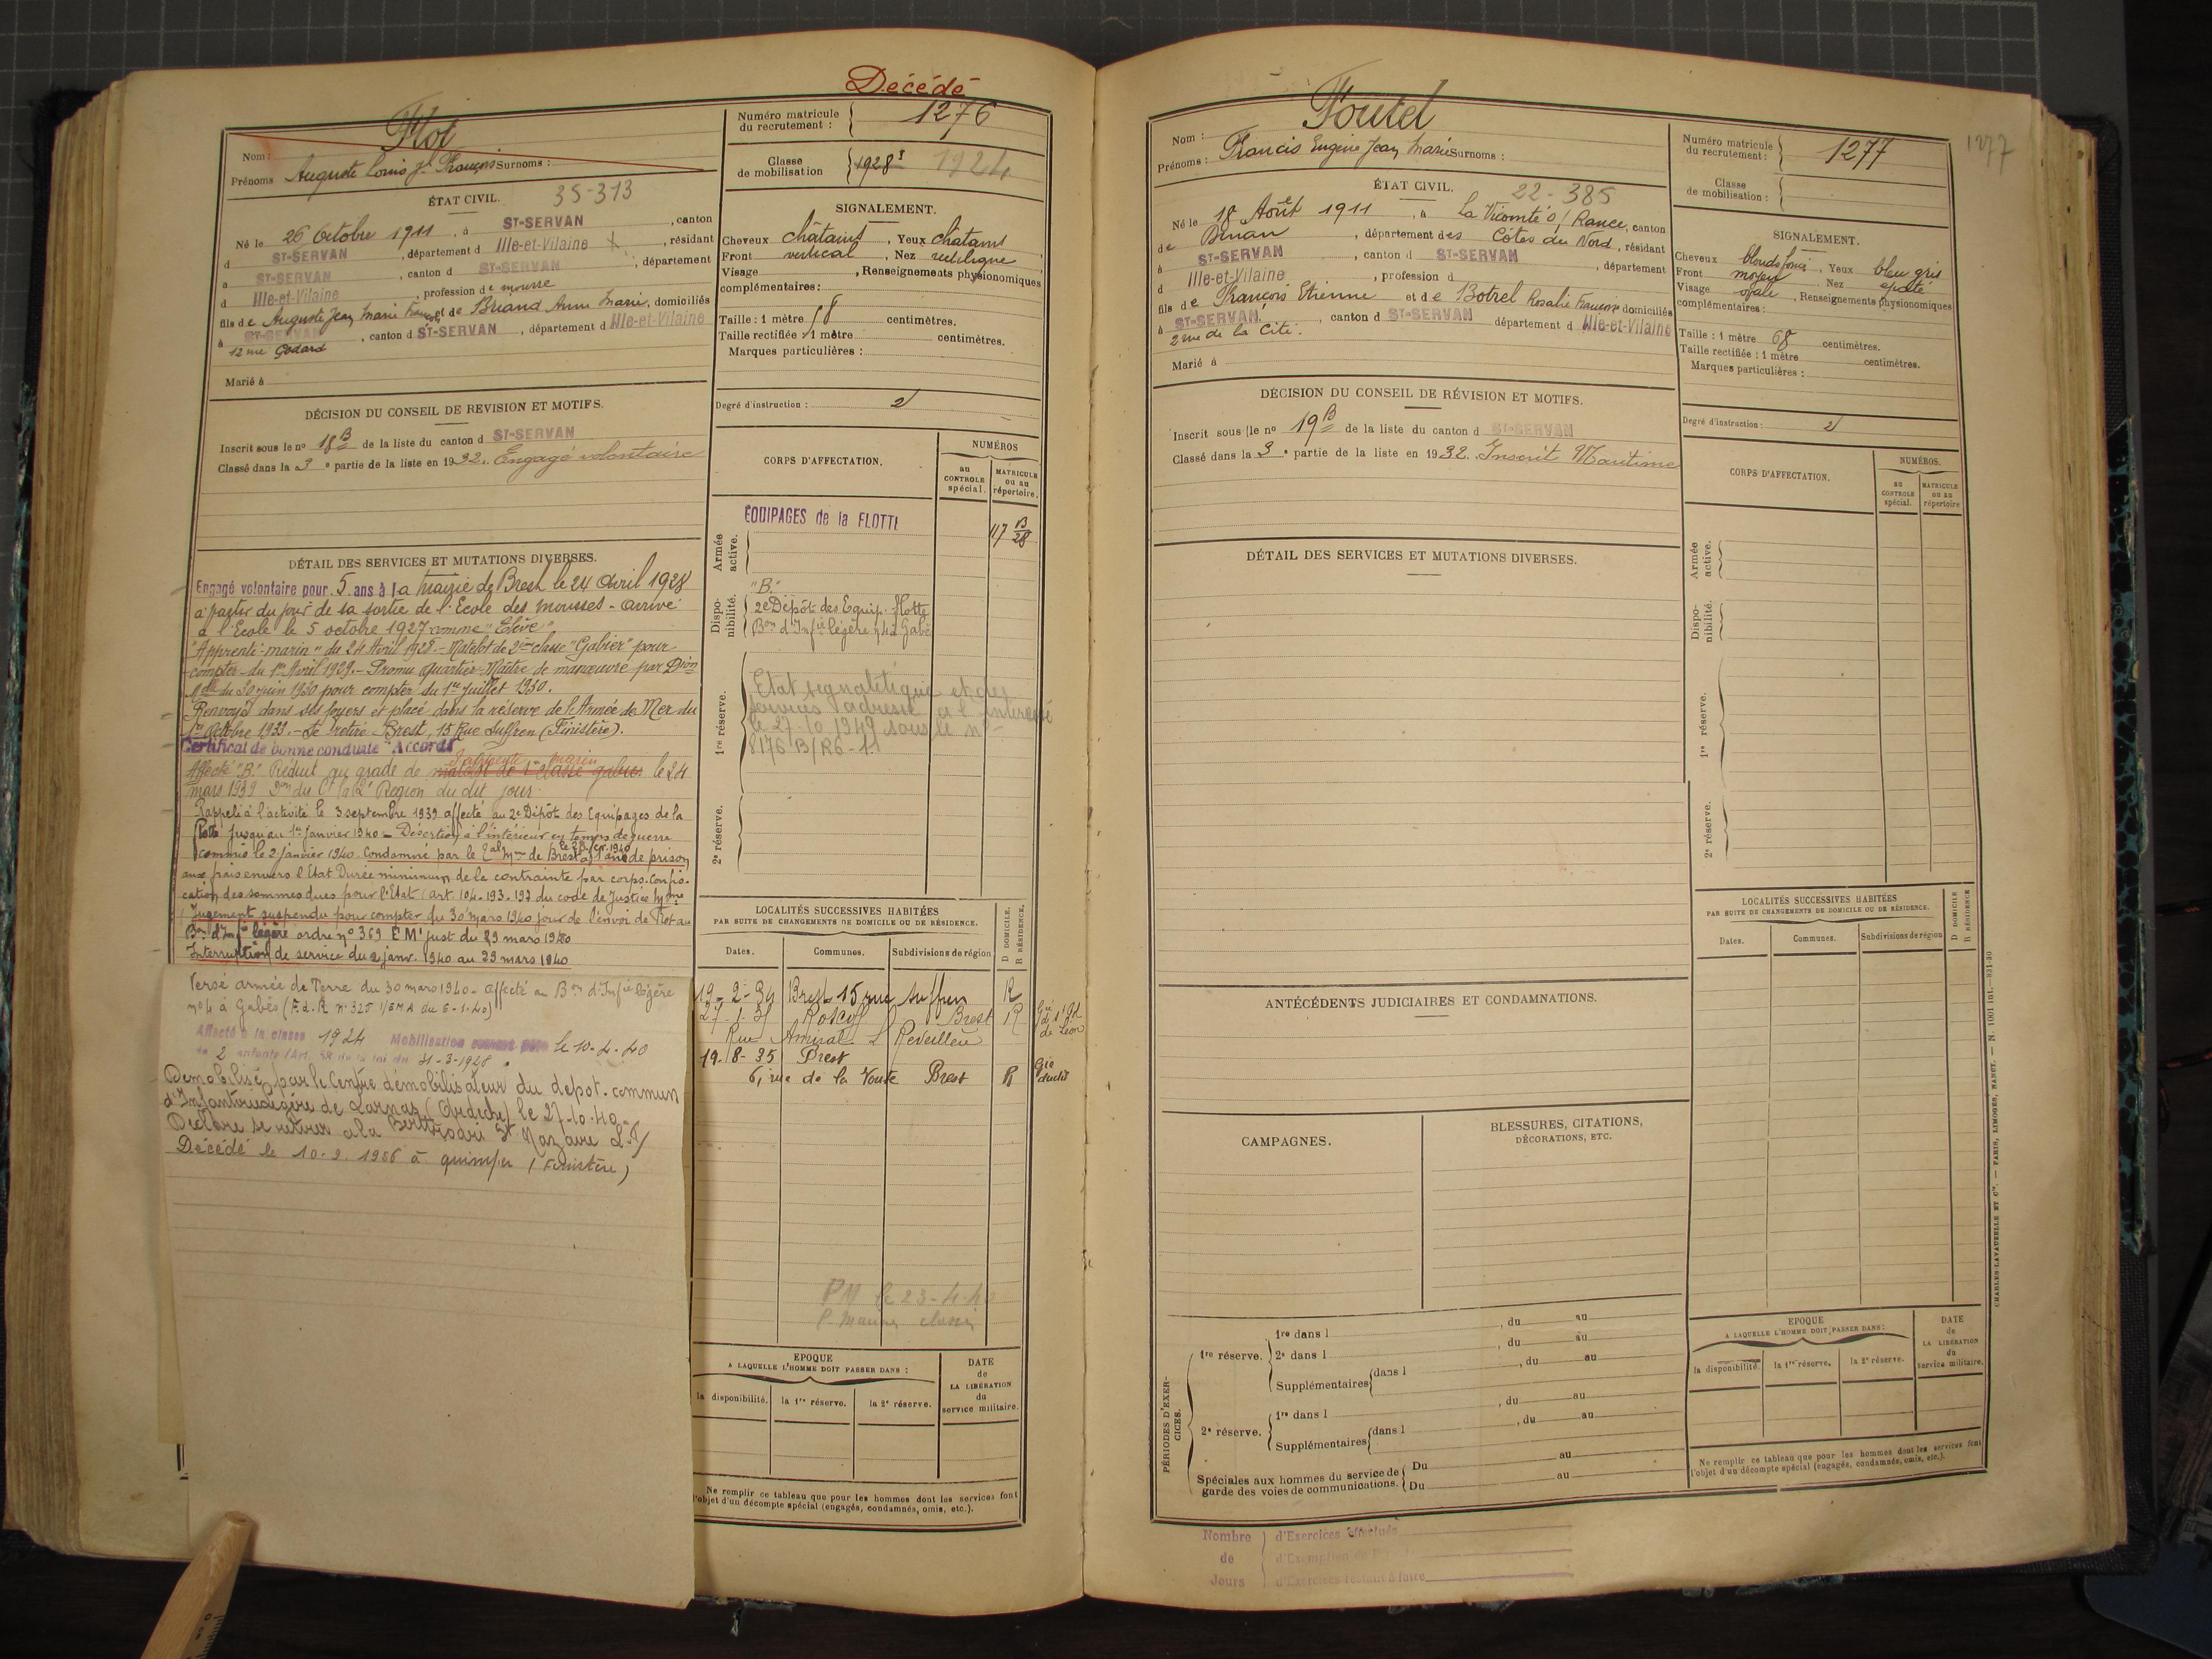 Décédé
Nom : Flot
Prénoms Auguste Louis Jh François Surnoms :
Numéro matricule du recrutement : 1276
Classe de mobilisation 1928 1924
ÉTAT CIVIL. 35-313
Né le 26 Octobre 1911, à ST-SERVAN, canton
d ST-SERVAN, département d Ille-et-Vilaine, résidant
à ST-SERVAN, canton d ST-SERVAN, département
d Ille-et-Vilaine, profession de mousse
fils de Auguste Jean Marie François et de Briand Anne Marie, domiciliés
à ST-SERVAN, canton d ST-SERVAN, département d Ille-et-Vilaine
12 rue Godard
Marié à
SIGNALEMENT.
Cheveux chatains, Yeux chatains
Front vertical, Nez rectiligne
Visage , Renseignements physionomiques
complémentaires :
Taille : 1 mètre 58 centimètres.
Taille rectifiée 1 mètre centimètres.
Marques particulières :
Degré d'instruction : 2
DÉCISION DU CONSEIL DE REVISION ET MOTIFS.
Inscrit sous le no 18 B de la liste du canton d ST-SERVAN
Classé dans la 3e partie de la liste en 1932. Engagé volontaire
DÉTAIL DES SERVICES ET MUTATIONS DIVERSES.
Engagé volontaire pour 5 ans à la Mairie de Brest le 24 Avril 1928
à partir du jour de sa sortie de l'Ecole des mousses - arrivé
à l'Ecole le 5 octobre 1927 comme "Elève"
"Apprenti-marin" du 24 Avril 1928. - Matelot de 2ème classe "Gabier" pour
compter du 1er Avril 1929. - Promu Quartier-Maître de manœuvre par Don
Mlle du 30 Juin 1930 pour compter du 1er Juillet 1930.
Renvoyé dans ses foyers et placé dans la réserve de l'Armée de Mer du
1er Octobre 1933. - Se retire Brest, 15 Rue Suffren (Finistère).
Certificat de bonne conduite "Accordé"
Affecté "B." Réduit au grade de matelot de 1ère classe gabier le 24
mars 1939 Don du Ct la 2e Région du dit jour.
Rappelé à l'activité le 3 septembre 1939 affecté au 2e Dépôt des Equipages de la
Flotte jusqu'au 1er janvier 1940 - Désertion à l'intérieur en temps de guerre
commis le 2 janvier 1940. Condamné par le Tal Mme de Brest à 1 an de prison
aux frais envers l'Etat Durée minimum de la contrainte par corps. Confis-
cation des sommes dues pour l'Etat (art 104-193-197 du code de Justice Mme
Jugement suspendu pour compter du 30 mars 1940 jour de l'envoi de Flot au
Bon d'Infie légère ordre no 369 EM1 just du 29 mars 1940
Interruption de service du 2 janv. 1940 au 29 mars 1940
Versé armée de Terre du 30 mars 1940 - affecté au Bon d'Infie légère
no 4 à Gabès (F.d.R no 325 1/EMA du 6-1-40)
Affecté à la classe 1924 Mobilisation comme père le 10-4-40
de 2 enfants (Art. 58 de la loi du 31-3-1928
Démobilisé par le Centre démobilisateur du dépot commun
d'Infanterie Légère de Larnas (Ardèche) le 27-10-40.
Déclare se retirer à la St Nazaire L.I/
Décédé le 10-2-1956 à quimper (Finistère)
CORPS D'AFFECTATION.
NUMÉROS
au CONTROLE spécial.
MATRICULE ou au répertoire.
Armée active.
ÉQUIPAGES de la FLOTTE
117 B/28
Disponibilité.
"B."
2e Dépôt des Equip. Flotte
Bon d'Infie légère no 4 à Gabès
1re réserve.
Etat signalétique et des
services adressé à l'intéressé
le 27-10-1949 sous le no
8176 B/R6-11
2e réserve.
LOCALITÉS SUCCESSIVES HABITÉES
PAR SUITE DE CHANGEMENTS DE DOMICILE OU DE RÉSIDENCE.
D DOMICILE. R RÉSIDENCE.
Dates. Communes. Subdivisions de région
19-2-34 Brest 15 rue Suffren R
Brest R
Rue Amiral Réveillère
19-8-35 Brest
6, rue de la Voute Brest R
PM le 23-4-40
EPOQUE
A LAQUELLE L'HOMME DOIT PASSER DANS :
la disponibilité. la 1re réserve. la 2e réserve.
DATE de LA LIBÉRATION du service militaire.
Ne remplir ce tableau que pour les hommes dont les services font
l'objet d'un décompte spécial (engagés, condamnés, omis, etc.).
1277
Nom : Foutel
Prénoms : Francis Eugène Jean Marie Surnoms :
Numéro matricule du recrutement : 1277
Classe de mobilisation :
ÉTAT CIVIL. 22-385
Né le 18 Août 1911, à La Vicomté s/ Rance, canton
de Dinan, département des Côtes du Nord, résidant
à ST-SERVAN, canton d ST-SERVAN, département
d Ille-et-Vilaine, profession d
fils de François Etienne et de Botrel Rosalie Françoise domiciliés
à ST-SERVAN, canton d ST-SERVAN département d Ille-et-Vilaine
2 rue de la Cité.
Marié à
SIGNALEMENT.
Cheveux blonds foncé, Yeux bleu gris
Front moyen Nez épaté
Visage ovale, Renseignements physionomiques
complémentaires :
Taille : 1 mètre 68 centimètres.
Taille rectifiée : 1 mètre centimètres.
Marques particulières :
Degré d'instruction : 2
DÉCISION DU CONSEIL DE RÉVISION ET MOTIFS.
Inscrit sous le no 19 B de la liste du canton d ST-SERVAN
Classé dans la 3e partie de la liste en 1932. Inscrit Maritime
DÉTAIL DES SERVICES ET MUTATIONS DIVERSES.
ANTÉCÉDENTS JUDICIAIRES ET CONDAMNATIONS.
CAMPAGNES.
BLESSURES, CITATIONS,
DÉCORATIONS, ETC.
PÉRIODES D'EXERCICES.
1re réserve.
1re dans l , du au
2e dans l , du au
Supplémentaires dans l , du au
2e réserve.
1re dans l , du au
Supplémentaires dans l , du au
Spéciales aux hommes du service de
garde des voies de communications.
Du au
Du au
CORPS D'AFFECTATION.
NUMÉROS.
au CONTROLE spécial.
MATRICULE ou au répertoire
Armée active.
Disponibilité.
1re réserve.
2e réserve.
LOCALITÉS SUCCESSIVES HABITÉES
PAR SUITE DE CHANGEMENTS DE DOMICILE OU DE RÉSIDENCE.
D DOMICILE R RÉSIDENCE
Dates. Communes. Subdivisions de région
EPOQUE
A LAQUELLE L'HOMME DOIT PASSER DANS :
la disponibilité. la 1re réserve. la 2e réserve.
DATE de LA LIBÉRATION du service militaire.
Ne remplir ce tableau que pour les hommes dont les services font
l'objet d'un décompte spécial (engagés, condamnés, omis, etc.).
CHARLES-LAVAUZELLE ET Cie. — PARIS, LIMOGES, NANCY. — N 1001 int.—831-30
Nombre de Jours
d'Exercices effectués
d'Exemption de
d'Exercices restant à faire